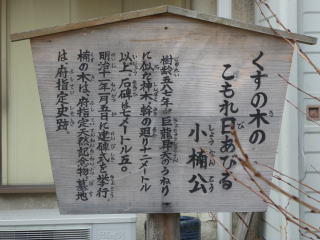 くすの木の
こもれ日あびる
小楠公
しょうなんこう
樹齢五八〇年
巨龍昇天のうねり
に似る神木、幹の廻り十二メートル
以上、石碑は七メートル五〇。
明治十一年一月五日に建碑式を挙行。
楠の木は、府指定天然記念物、墓地
は、府指定史跡。